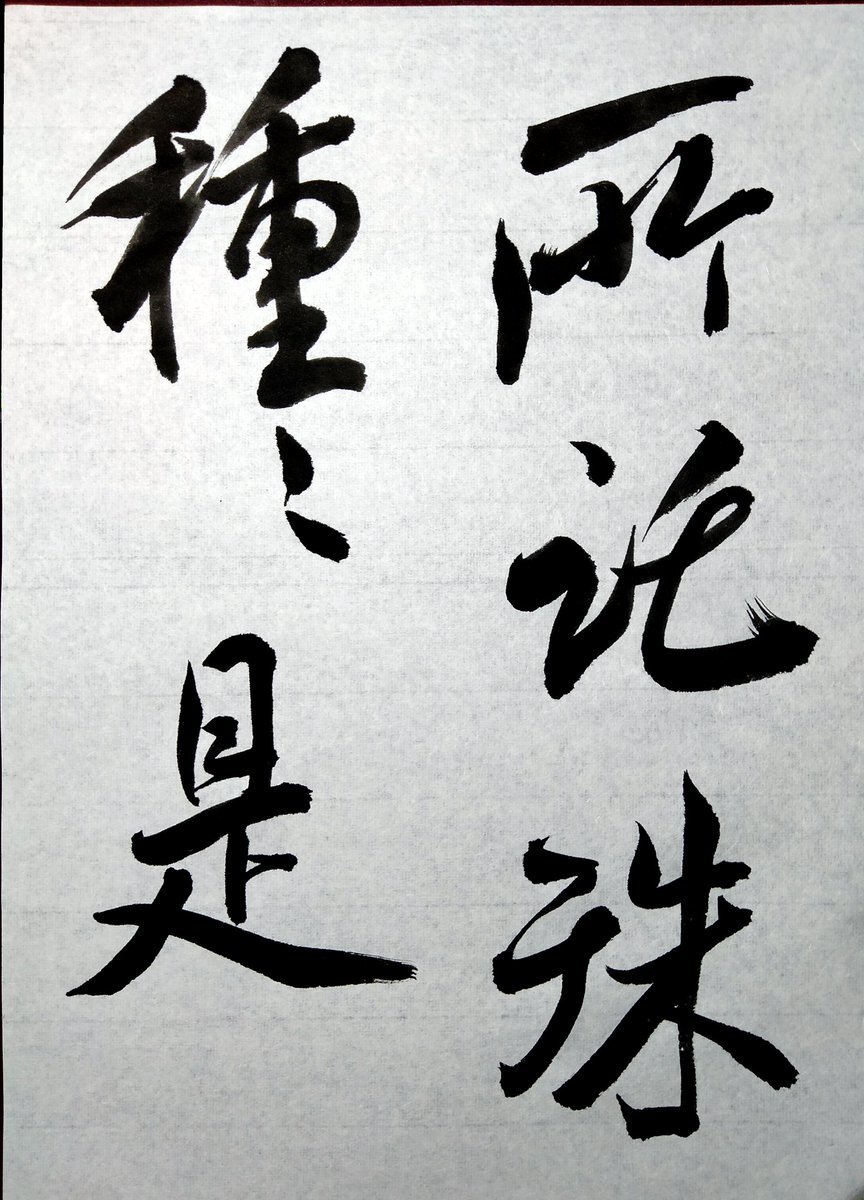 所託殊
種〻是